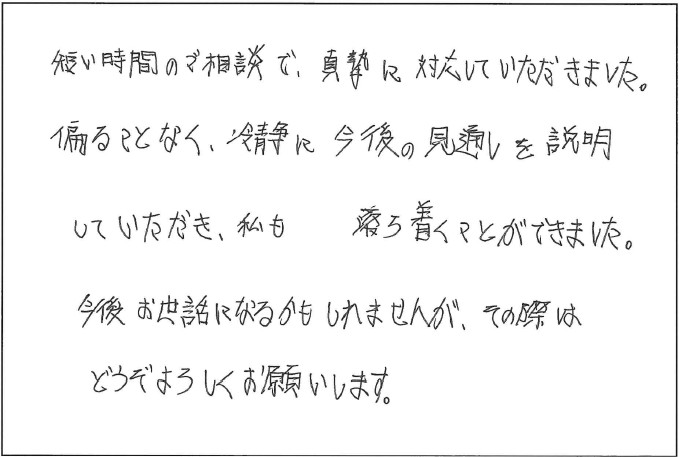 短い時間のご相談で、真摯に対応していただきました。
偏ることなく、冷静に今後の見通しを説明
していただき、私も 落ち着くことができました。
今後お世話になるかもしれませんが、その際は
どうぞよろしくお願いします。